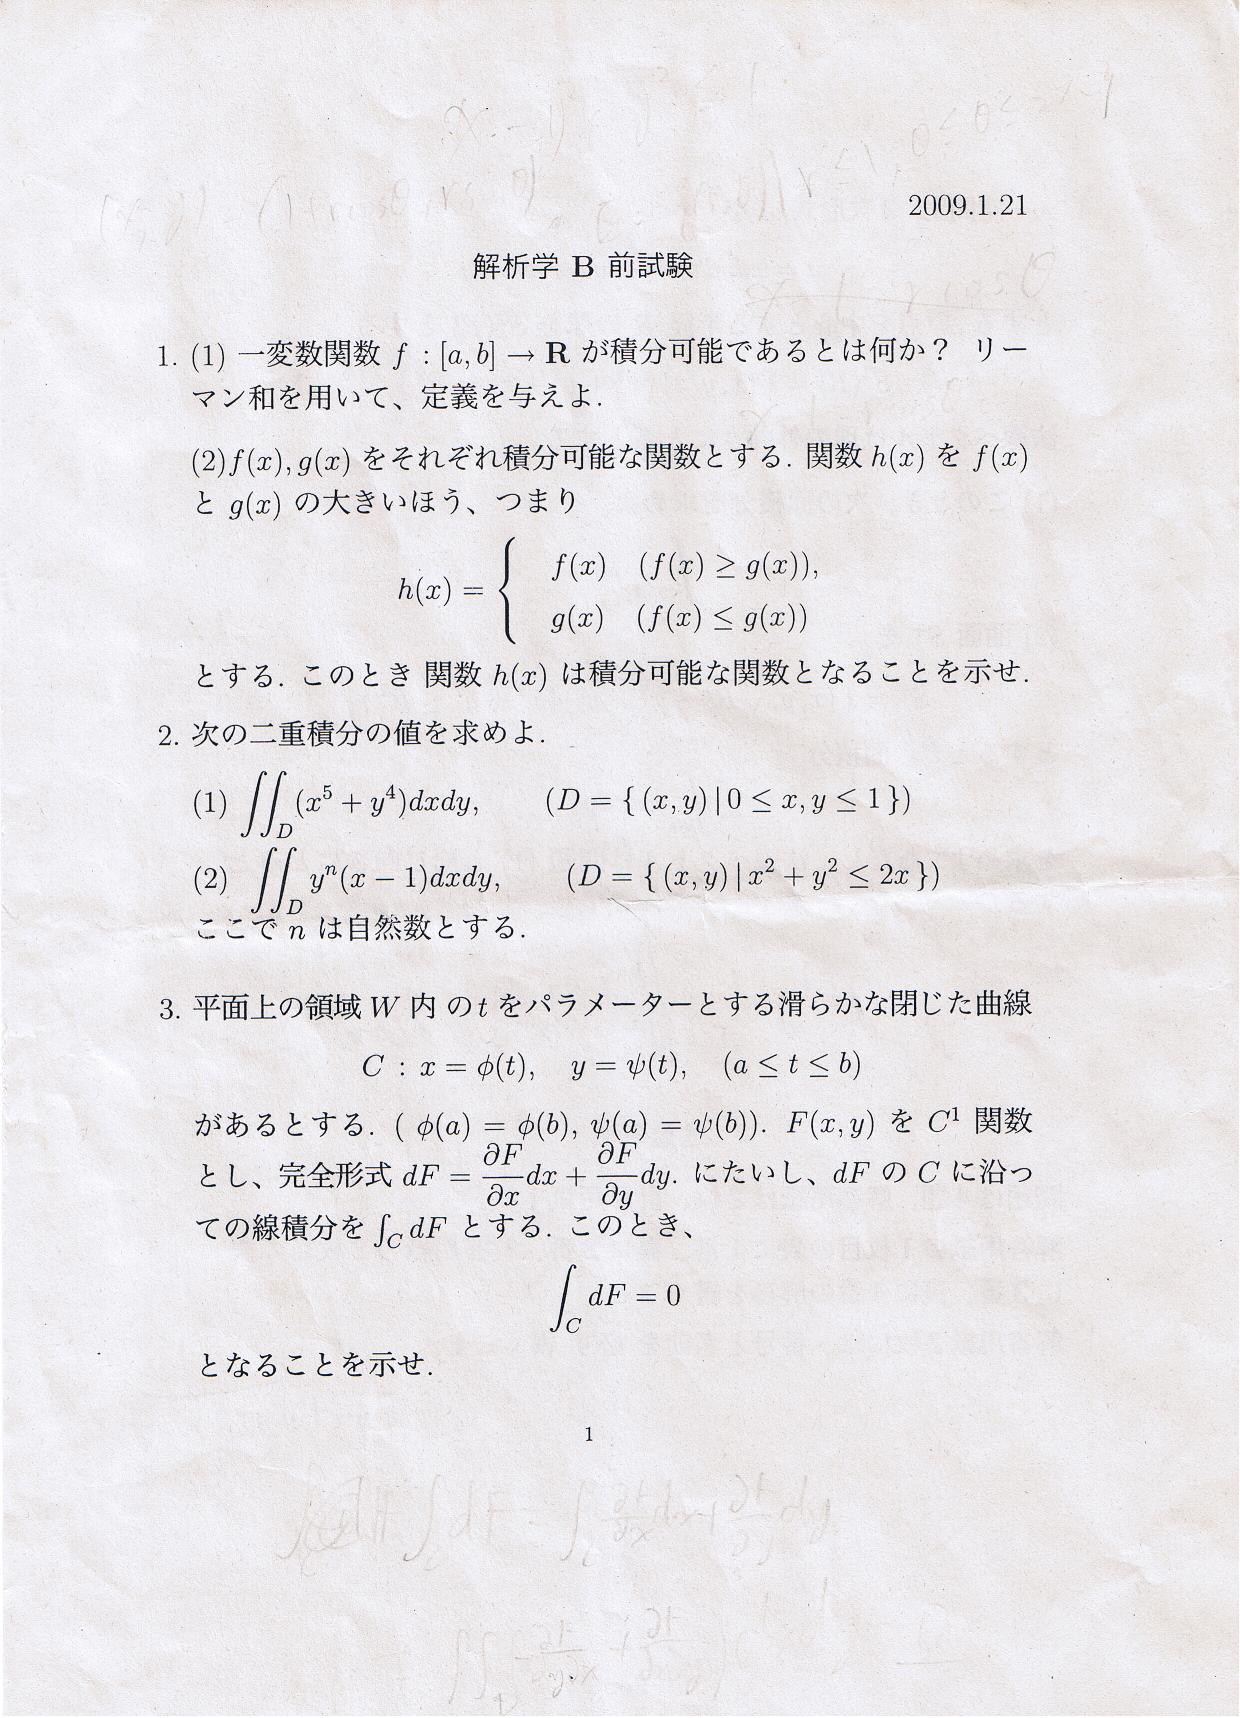 2009.1.21
解析学 B 前試験
1. (1) 一変数関数 f : [a, b] → R が積分可能であるとは何か？ リー
マン和を用いて、定義を与えよ.
(2)f(x), g(x) をそれぞれ積分可能な関数とする. 関数 h(x) を f(x)
と g(x) の大きいほう、つまり
h(x) = { f(x) (f(x) ≥ g(x)),
g(x) (f(x) ≤ g(x))
とする. このとき 関数 h(x) は積分可能な関数となることを示せ.
2. 次の二重積分の値を求めよ.
(1) ∬_D (x⁵ + y⁴)dxdy, (D = { (x, y) | 0 ≤ x, y ≤ 1 })
(2) ∬_D yⁿ(x − 1)dxdy, (D = { (x, y) | x² + y² ≤ 2x })
ここで n は自然数とする.
3. 平面上の領域 W 内 の t をパラメーターとする滑らかな閉じた曲線
C : x = ϕ(t), y = ψ(t), (a ≤ t ≤ b)
があるとする. ( ϕ(a) = ϕ(b), ψ(a) = ψ(b)). F(x, y) を C¹ 関数
とし、完全形式 dF = ∂F/∂x dx + ∂F/∂y dy. にたいし、dF の C に沿っ
ての線積分を ∫_C dF とする. このとき、
∫_C dF = 0
となることを示せ.
1